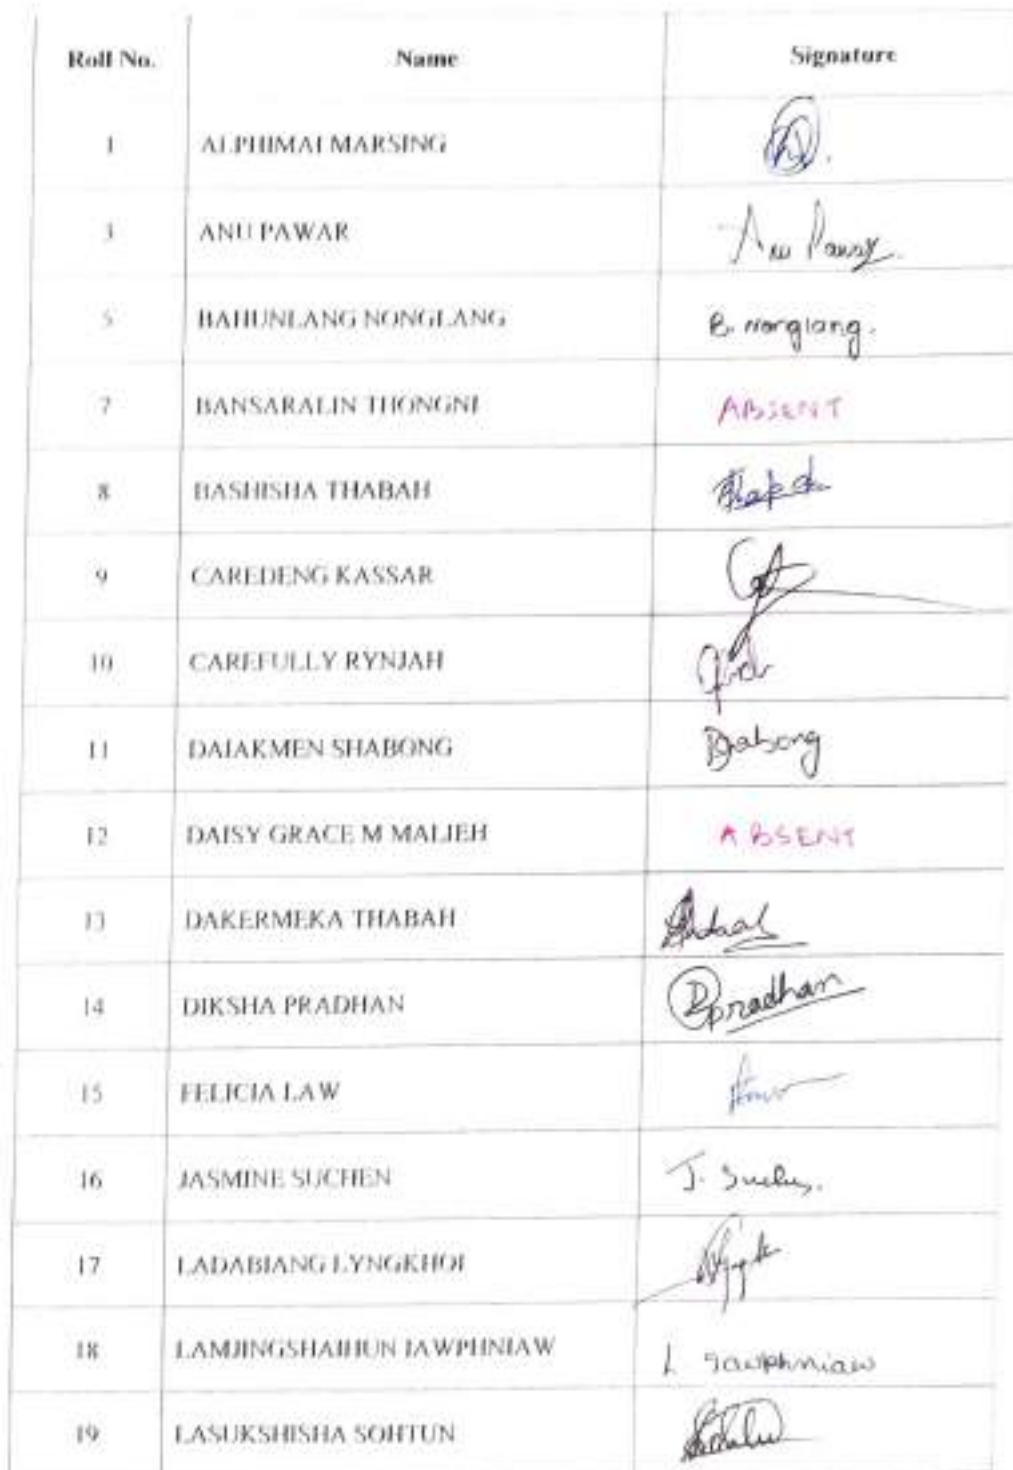 Roll No. Name Signature
1 ALPHIMAI MARSING
3 ANU PAWAR Anu Pawar
5 BAHUNLANG NONGLANG B. Nonglang.
7 BANSARALIN THONGNI ABSENT
8 BASHISHA THABAH
9 CAREDENG KASSAR
10 CAREFULLY RYNJAH
11 DAIAKMEN SHABONG
12 DAISY GRACE M MALIEH ABSENT
13 DAKERMEKA THABAH
14 DIKSHA PRADHAN Dpradhan
15 FELICIA LAW
16 JASMINE SUCHEN J. Suchen.
17 LADABIANG LYNGKHOI
18 LAMJINGSHAIHUN JAWPHNIAW L Jawphniaw
19 LASUKSHISHA SOHTUN